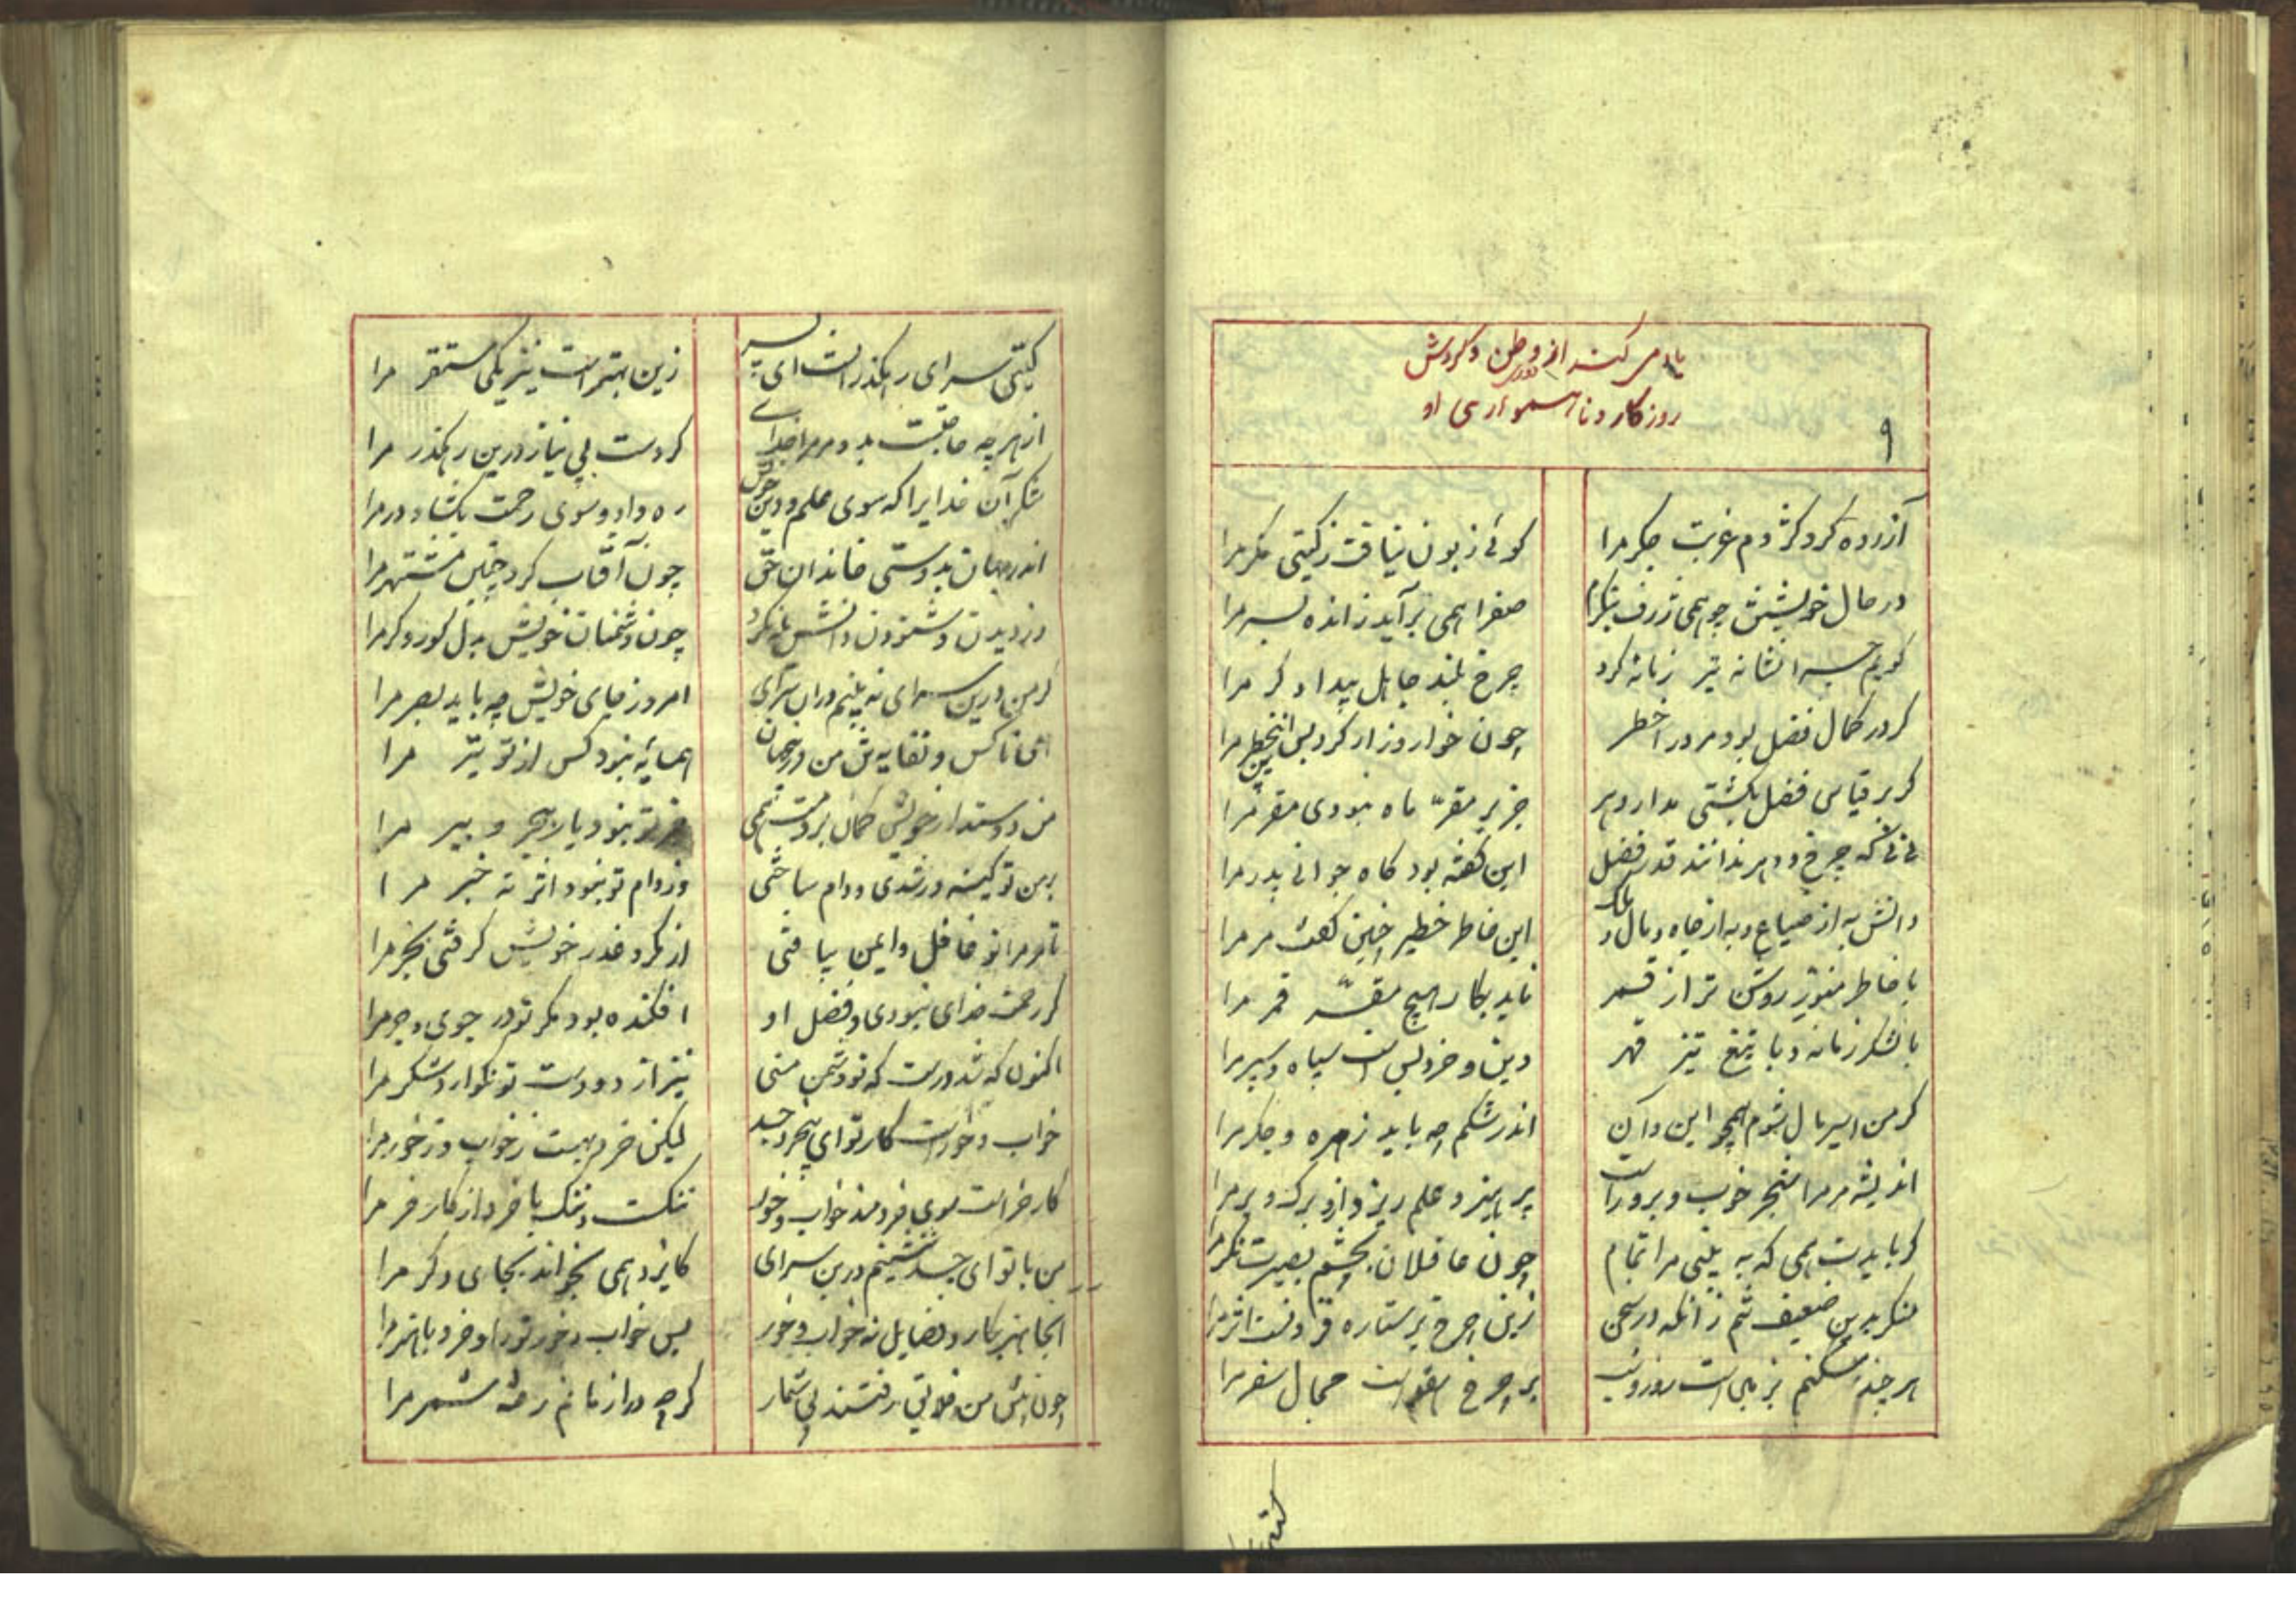 یاد می کند از دوری وطن و کردش
روزکار و ناهمواری او
۹
آزرده کرد کژدم غربت جکر مرا
کوئی زبون نیافت ز کیتی مکر مرا
در حال خویشتن چو همی ژرف بنکرم
صفرا همی برآید ز انده بسر مرا
کویم چرا نشانه تیر زمانه کرد
چرخ بلند جاهل بیدادکر مرا
کر در کمال فضل بود مرد را خطر
چون خوار و زار کرد پس این بی‌خطر مرا
کر بر قیاس فضل بکشتی مدار دهر
جز بر مقر ماه نبودی مقر مرا
نی نی که چرخ و دهر ندانند قدر فضل
این کفته بود کاه جوانی پدر مرا
دانش به از ضیاع و به از جاه و مال و ملک
این خاطر خطیر چنین کفت مر مرا
با خاطر منور روشن تر از قمر
ناید بکار هیچ مقر قمر مرا
با لشکر زمانه و با تیغ تیز قهر
دین و خرد بس است سپاه و سپر مرا
کر من اسیر مال شوم همچو این و آن
اندر شکم چه باید زهره و جکر مرا
اندیشه مر مرا شجر خوب و بروراست
پرهیز و علم ریزد ازو برک و بر مرا
کر بایدت همی که به بینی مرا تمام
چون عاقلان بچشم بصیرت نکر مرا
منکر بدین ضعیف تنم زانکه در سخن
زین چرخ پر ستاره فزونست اثر مرا
هر چند مسکنم بزمی است روز و شب
بر چرخ هفتم است مجال سفر مرا
کیتی
کیتی سرای رهکذر است ای پسر
زین بهتر است نیز یکی مستقر مرا
از هر چه حاجت بدو مر مرا خدای
کردست بی نیاز درین رهکذر مرا
شکر آن خدایرا که سوی علم و دین خویش
ره داد و سوی رحمت بکشاد در مرا
اندر جهان بدوستی خاندان حق
چون آفتاب کرد چنین مشتهر مرا
وز دیدن و شنودن دانش یله نکرد
چون دشمنان خویش بدل کور و کر مرا
کر من درین سرای نه بینم دران سرای
امروز جای خویش چه باید بصر مرا
ای ناکس و نفایه تن من درین جهان
همسایه نبود کس از تو بتر مرا
من دوستدار خویش کمان بردمت همی
جز تو نبود یار ببحر و ببر مرا
بر من تو کینه ور شدی و دام ساختی
وز دام تو نبود اثر نه خبر مرا
تا مر مرا تو غافل و ایمن بیافتی
از مکر و غدر خویش کرفتی بخر مرا
کر رحمت خدای نبودی و فضل او
افکنده بود مکر تو در جوی و جر مرا
اکنون که شد درست که تو دشمن منی
نیز از دو دست تو نکوارد شکر مرا
خواب و خور است کار تو ای بیخرد جسد
لیکن خرد بهست ز خواب و ز خور مرا
کار خر است سوی خردمند خواب و خور
ننکست ننک با خرد از کار خر مرا
من با تو ای جسد ننشینم درین سرای
کایزد همی بخواند بجای دکر مرا
آنجا هنر بکار و فضایل نه خواب و خور
پس خواب و خور ترا و خرد با هنر مرا
چون پیش من خلایق رفتند بی شمار
کرچه دراز مانم رفته شمر مرا